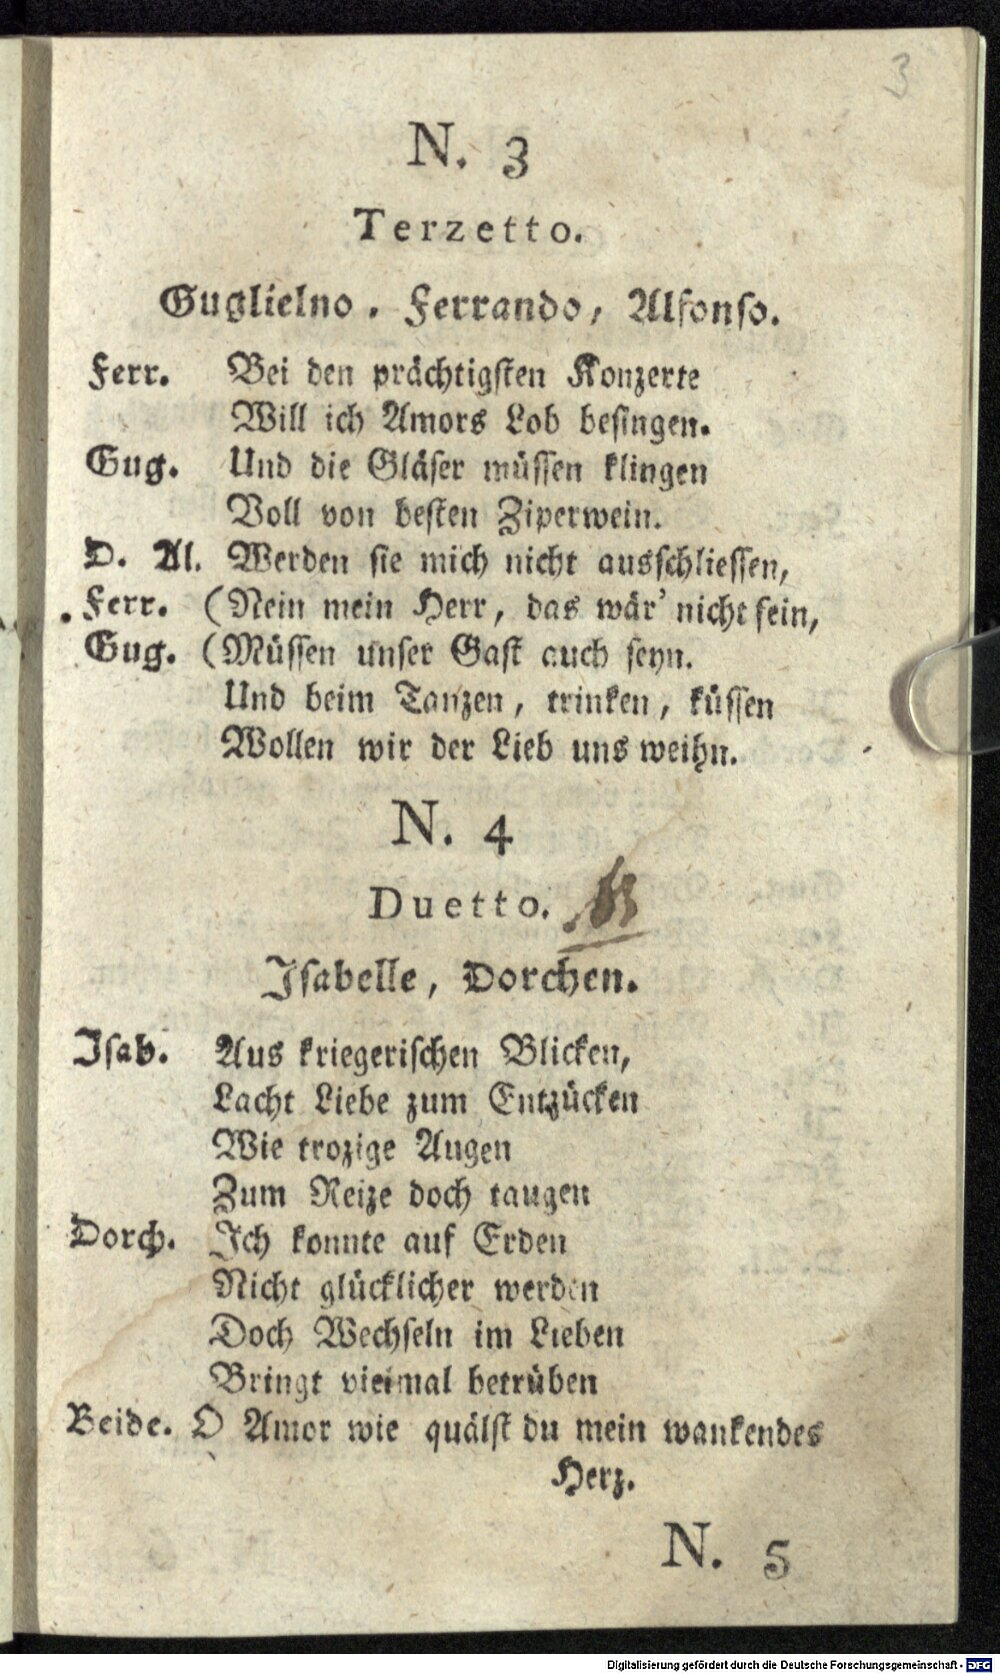 3
N. 3
Terzetto.
Guglielno. Ferrando, Alfonso.
Ferr. Bei den prächtigsten Konzerte
Will ich Amors Lob besingen.
Gug. Und die Gläser müssen klingen
Voll von besten Ziperwein.
D. Al. Werden sie mich nicht ausschliessen,
Ferr. (Nein mein Herr, das wär' nicht fein,
Gug. (Müssen unser Gast auch seyn.
Und beim Tanzen, trinken, küssen
Wollen wir der Lieb uns weihn.
N. 4
Duetto.
Isabelle, Dorchen.
Isab. Aus kriegerischen Blicken,
Lacht Liebe zum Entzücken
Wie trozige Augen
Zum Reize doch taugen
Dorch. Ich konnte auf Erden
Nicht glücklicher werden
Doch Wechseln im Lieben
Bringt vielmal betrüben
Beide. O Amor wie quälst du mein wankendes
Herz.
N. 5
Digitalisierung gefördert durch die Deutsche Forschungsgemeinschaft - DFG